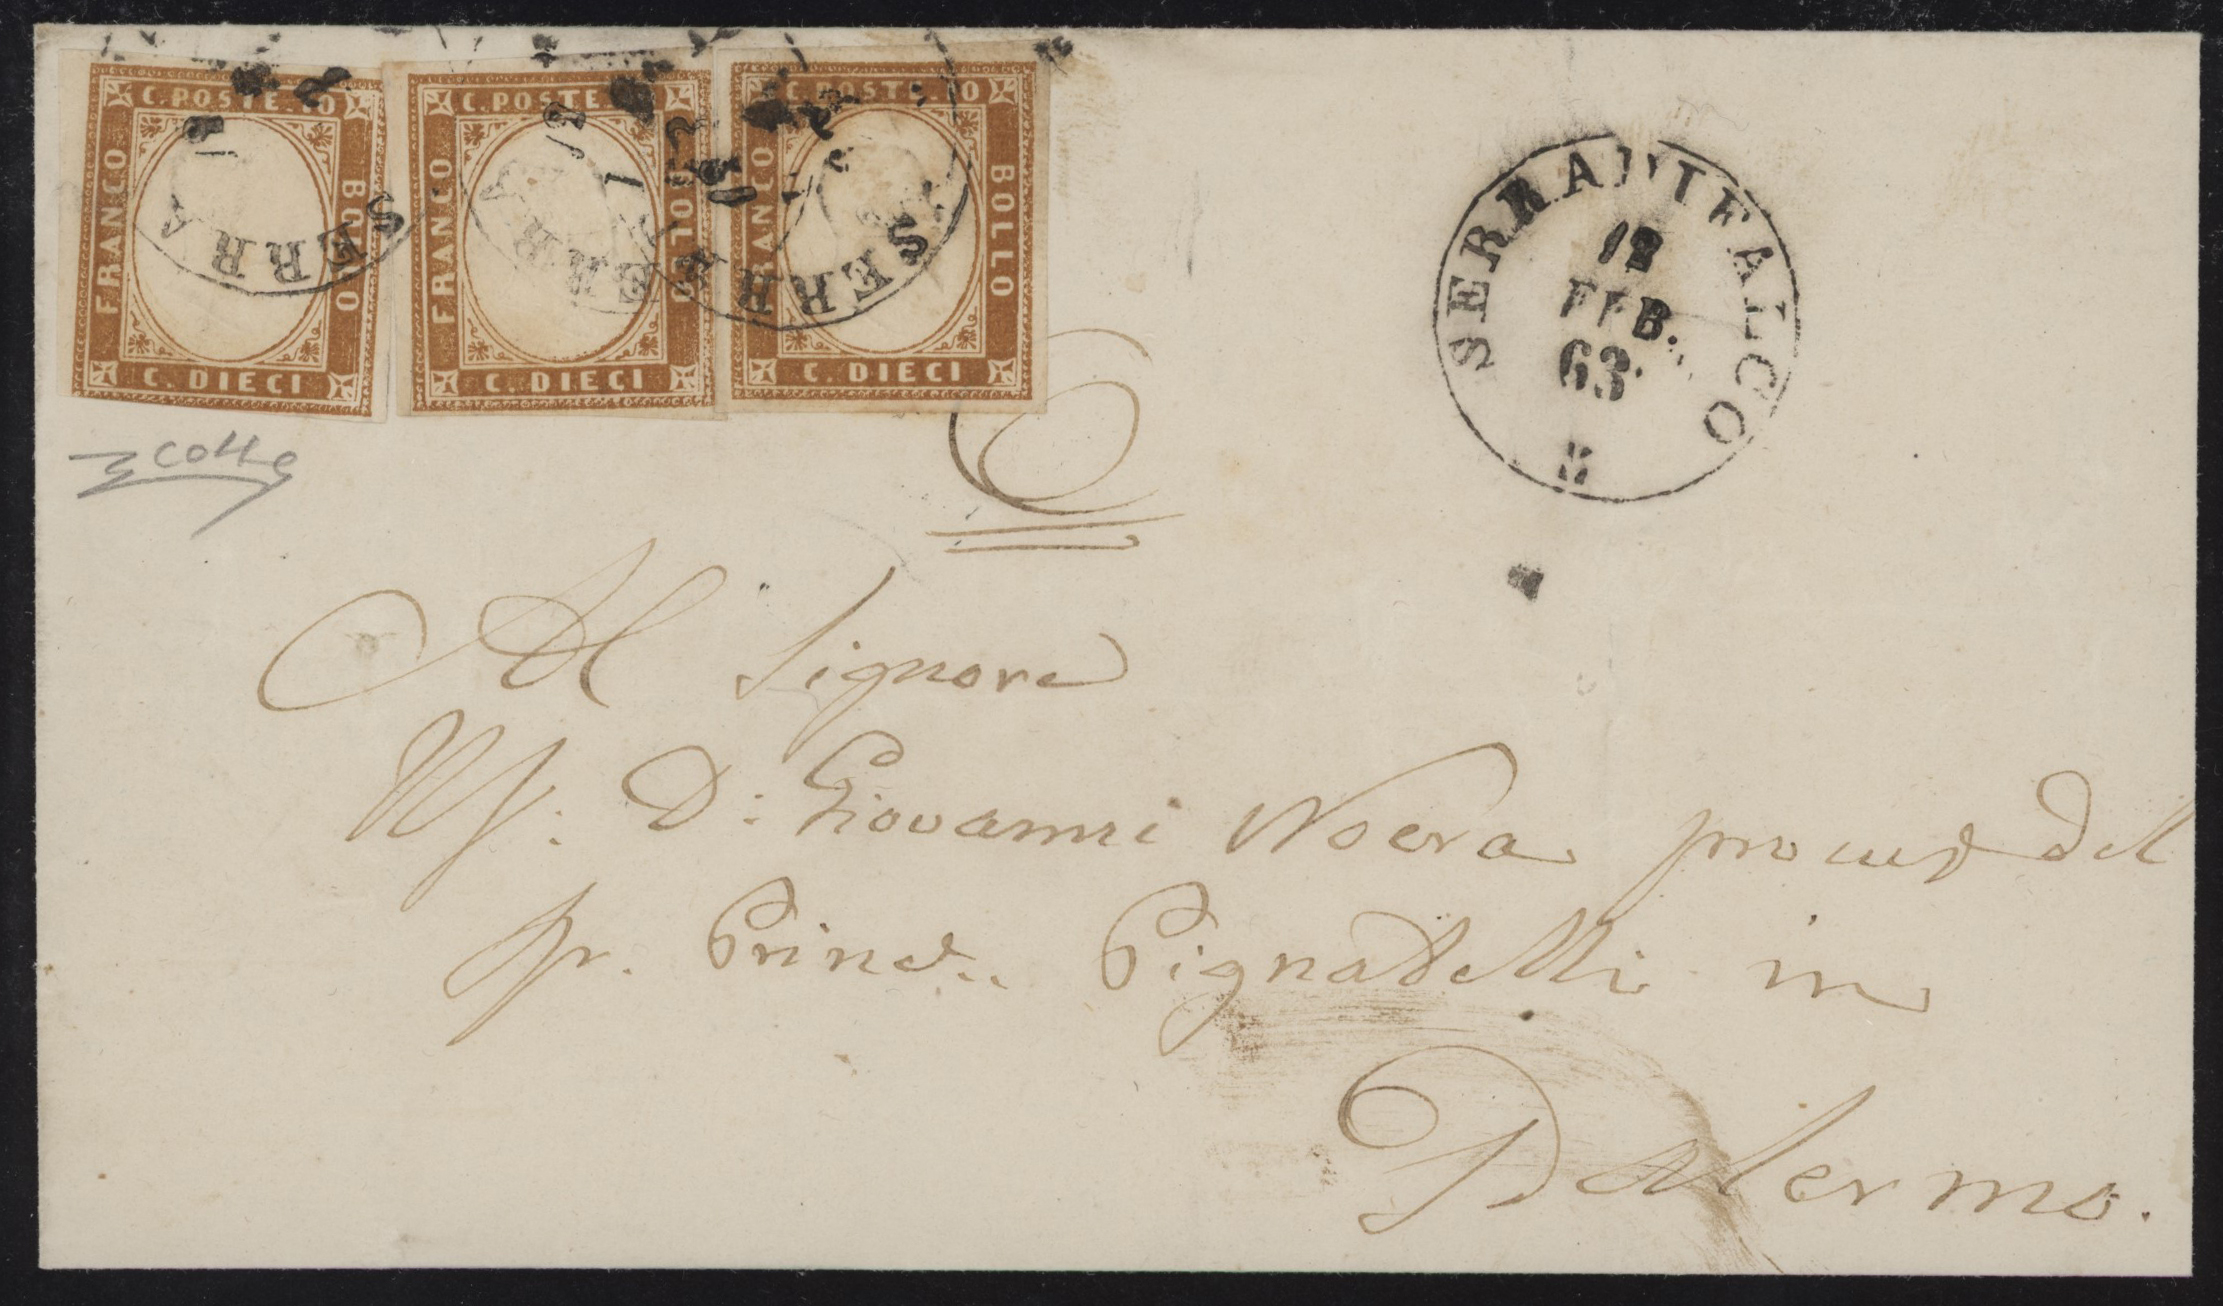 C. POSTE. 10
FRANCO
BOLLO
C. DIECI
C. POSTE.
FRANCO
BOLLO
C. DIECI
C. POSTE. 10
FRANCO
BOLLO
C. DIECI
SERRA
SERRA
SERRA
SERRADIFALCO
12
FEB.
63.
Al Signore
D: Giovanni Noera procur del
Sr. Princ.. Pignatelli in
Palermo.